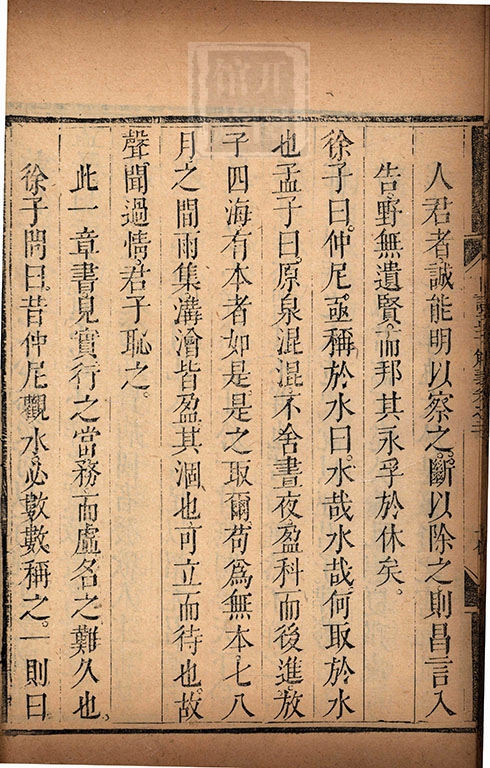 人君者誠能明以察之。斷以除之則昌言入
告野無遺賢。而邦其永孚於休矣。
徐子曰。仲尼亟稱於水曰。水哉水哉何取於水
也孟子曰。原泉混混不舍晝夜盈科而後進。放
乎四海有本者如是是之取爾。苟爲無本七八
月之間雨集溝澮皆盈。其涸也可立而待也。故
聲聞過情君子恥之。
此一章書見實行之當務而虛名之難久也。
徐子問曰。昔仲尼觀水。必數數稱之。一則曰